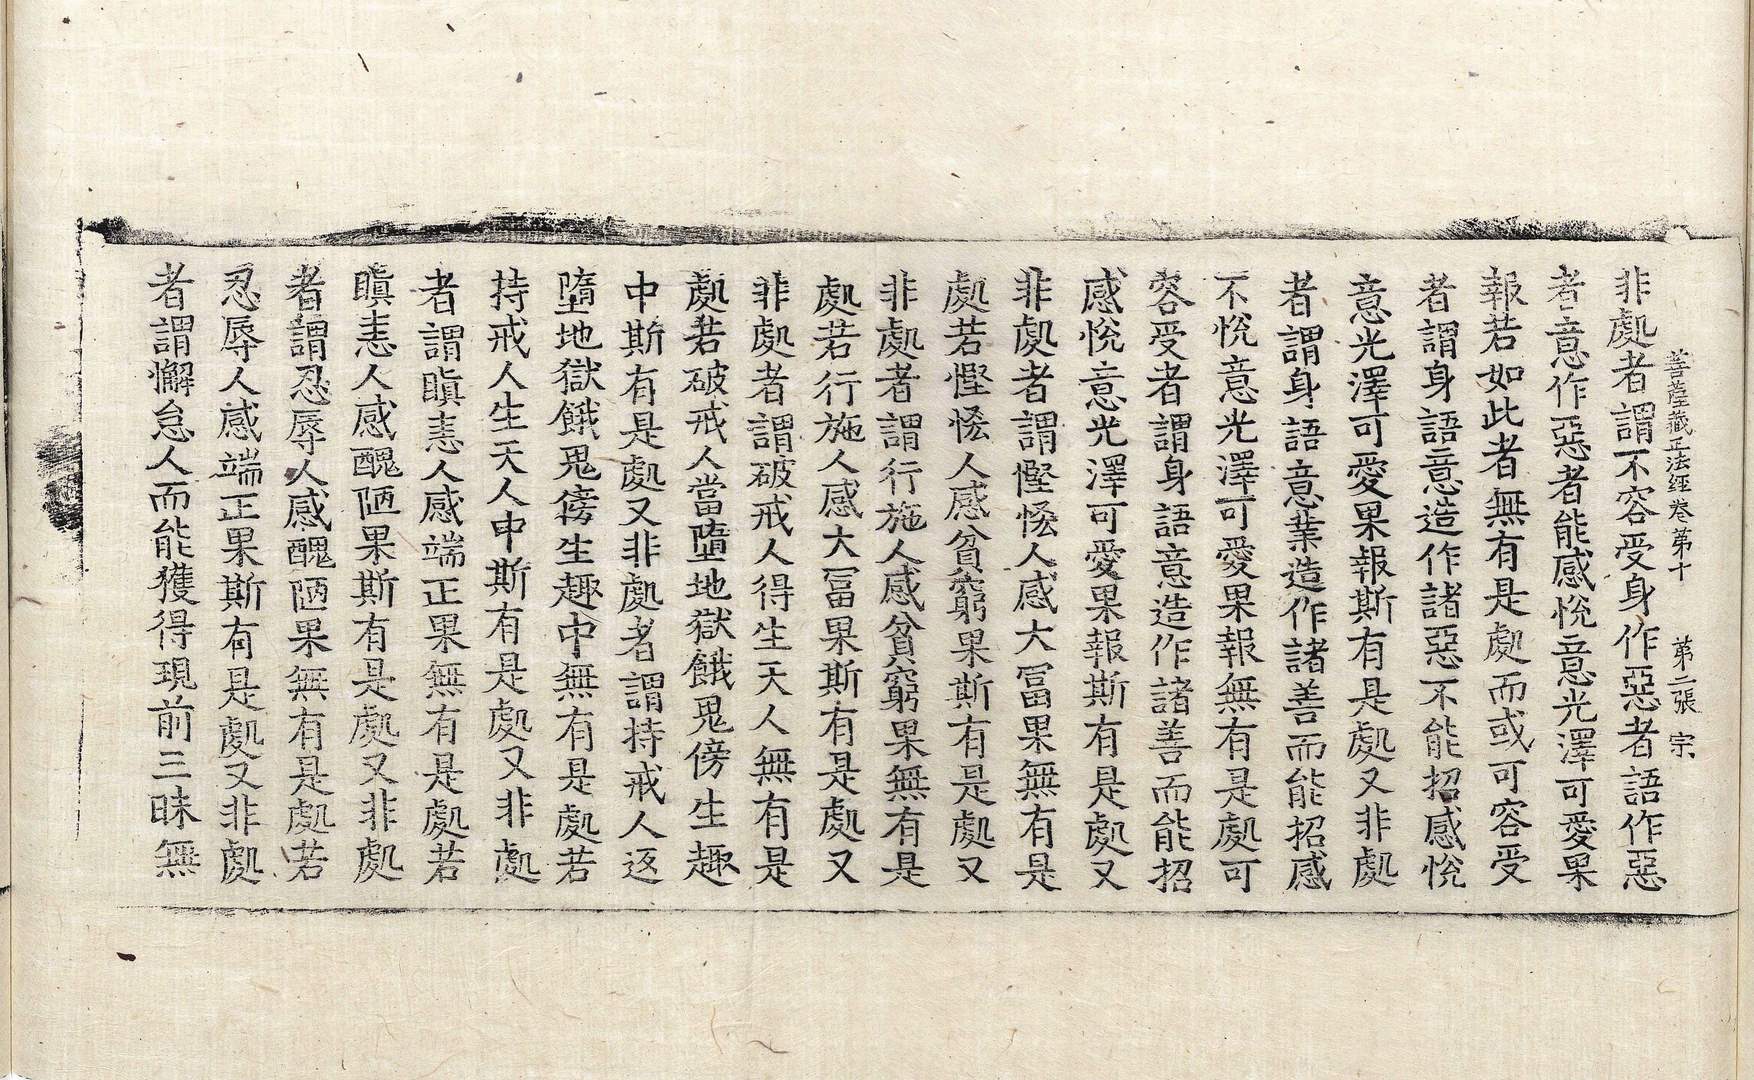 菩薩藏正法經卷第十　第二張　宗
非處者謂不容受身作惡者語作惡
者意作惡者能感悅意光澤可愛果
報若如此者無有是處而或可容受
者謂身語意造作諸惡不能招感悅
意光澤可愛果報斯有是處又非處
者謂身語意業造作諸善而能招感
不悅意光澤可愛果報無有是處可
容受者謂身語意造作諸善而能招
感悅意光澤可愛果報斯有是處又
非處者謂慳恡人感大冨果無有是
處若慳恡人感貧窮果斯有是處又
非處者謂行施人感貧窮果無有是
處若行施人感大冨果斯有是處又
非處者謂破戒人得生天人無有是
處若破戒人當墮地獄餓鬼傍生趣
中斯有是處又非處者謂持戒人返
墮地獄餓鬼傍生趣中無有是處若
持戒人生天人中斯有是處又非處
者謂瞋恚人感端正果無有是處若
瞋恚人感醜陋果斯有是處又非處
者謂忍辱人感醜陋果無有是處若
忍辱人感端正果斯有是處又非處
者謂懈怠人而能獲得現前三昧無